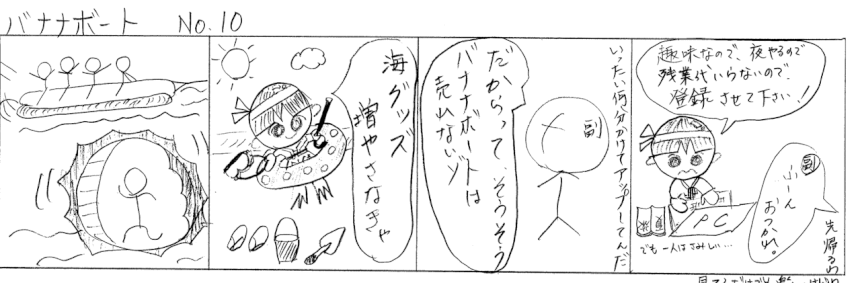 バナナボート No.10
海グッズ
増やさなきゃ
だからって、そうそう
バナナボートは
売れないゾ
副
いったい何分かけてアップしてんだ
趣味なので、夜やるので
残業代いらないので、
登録させて下さい!
PC
でも一人はさみしい…
副
ふーん
おつかれ。
先帰るわ